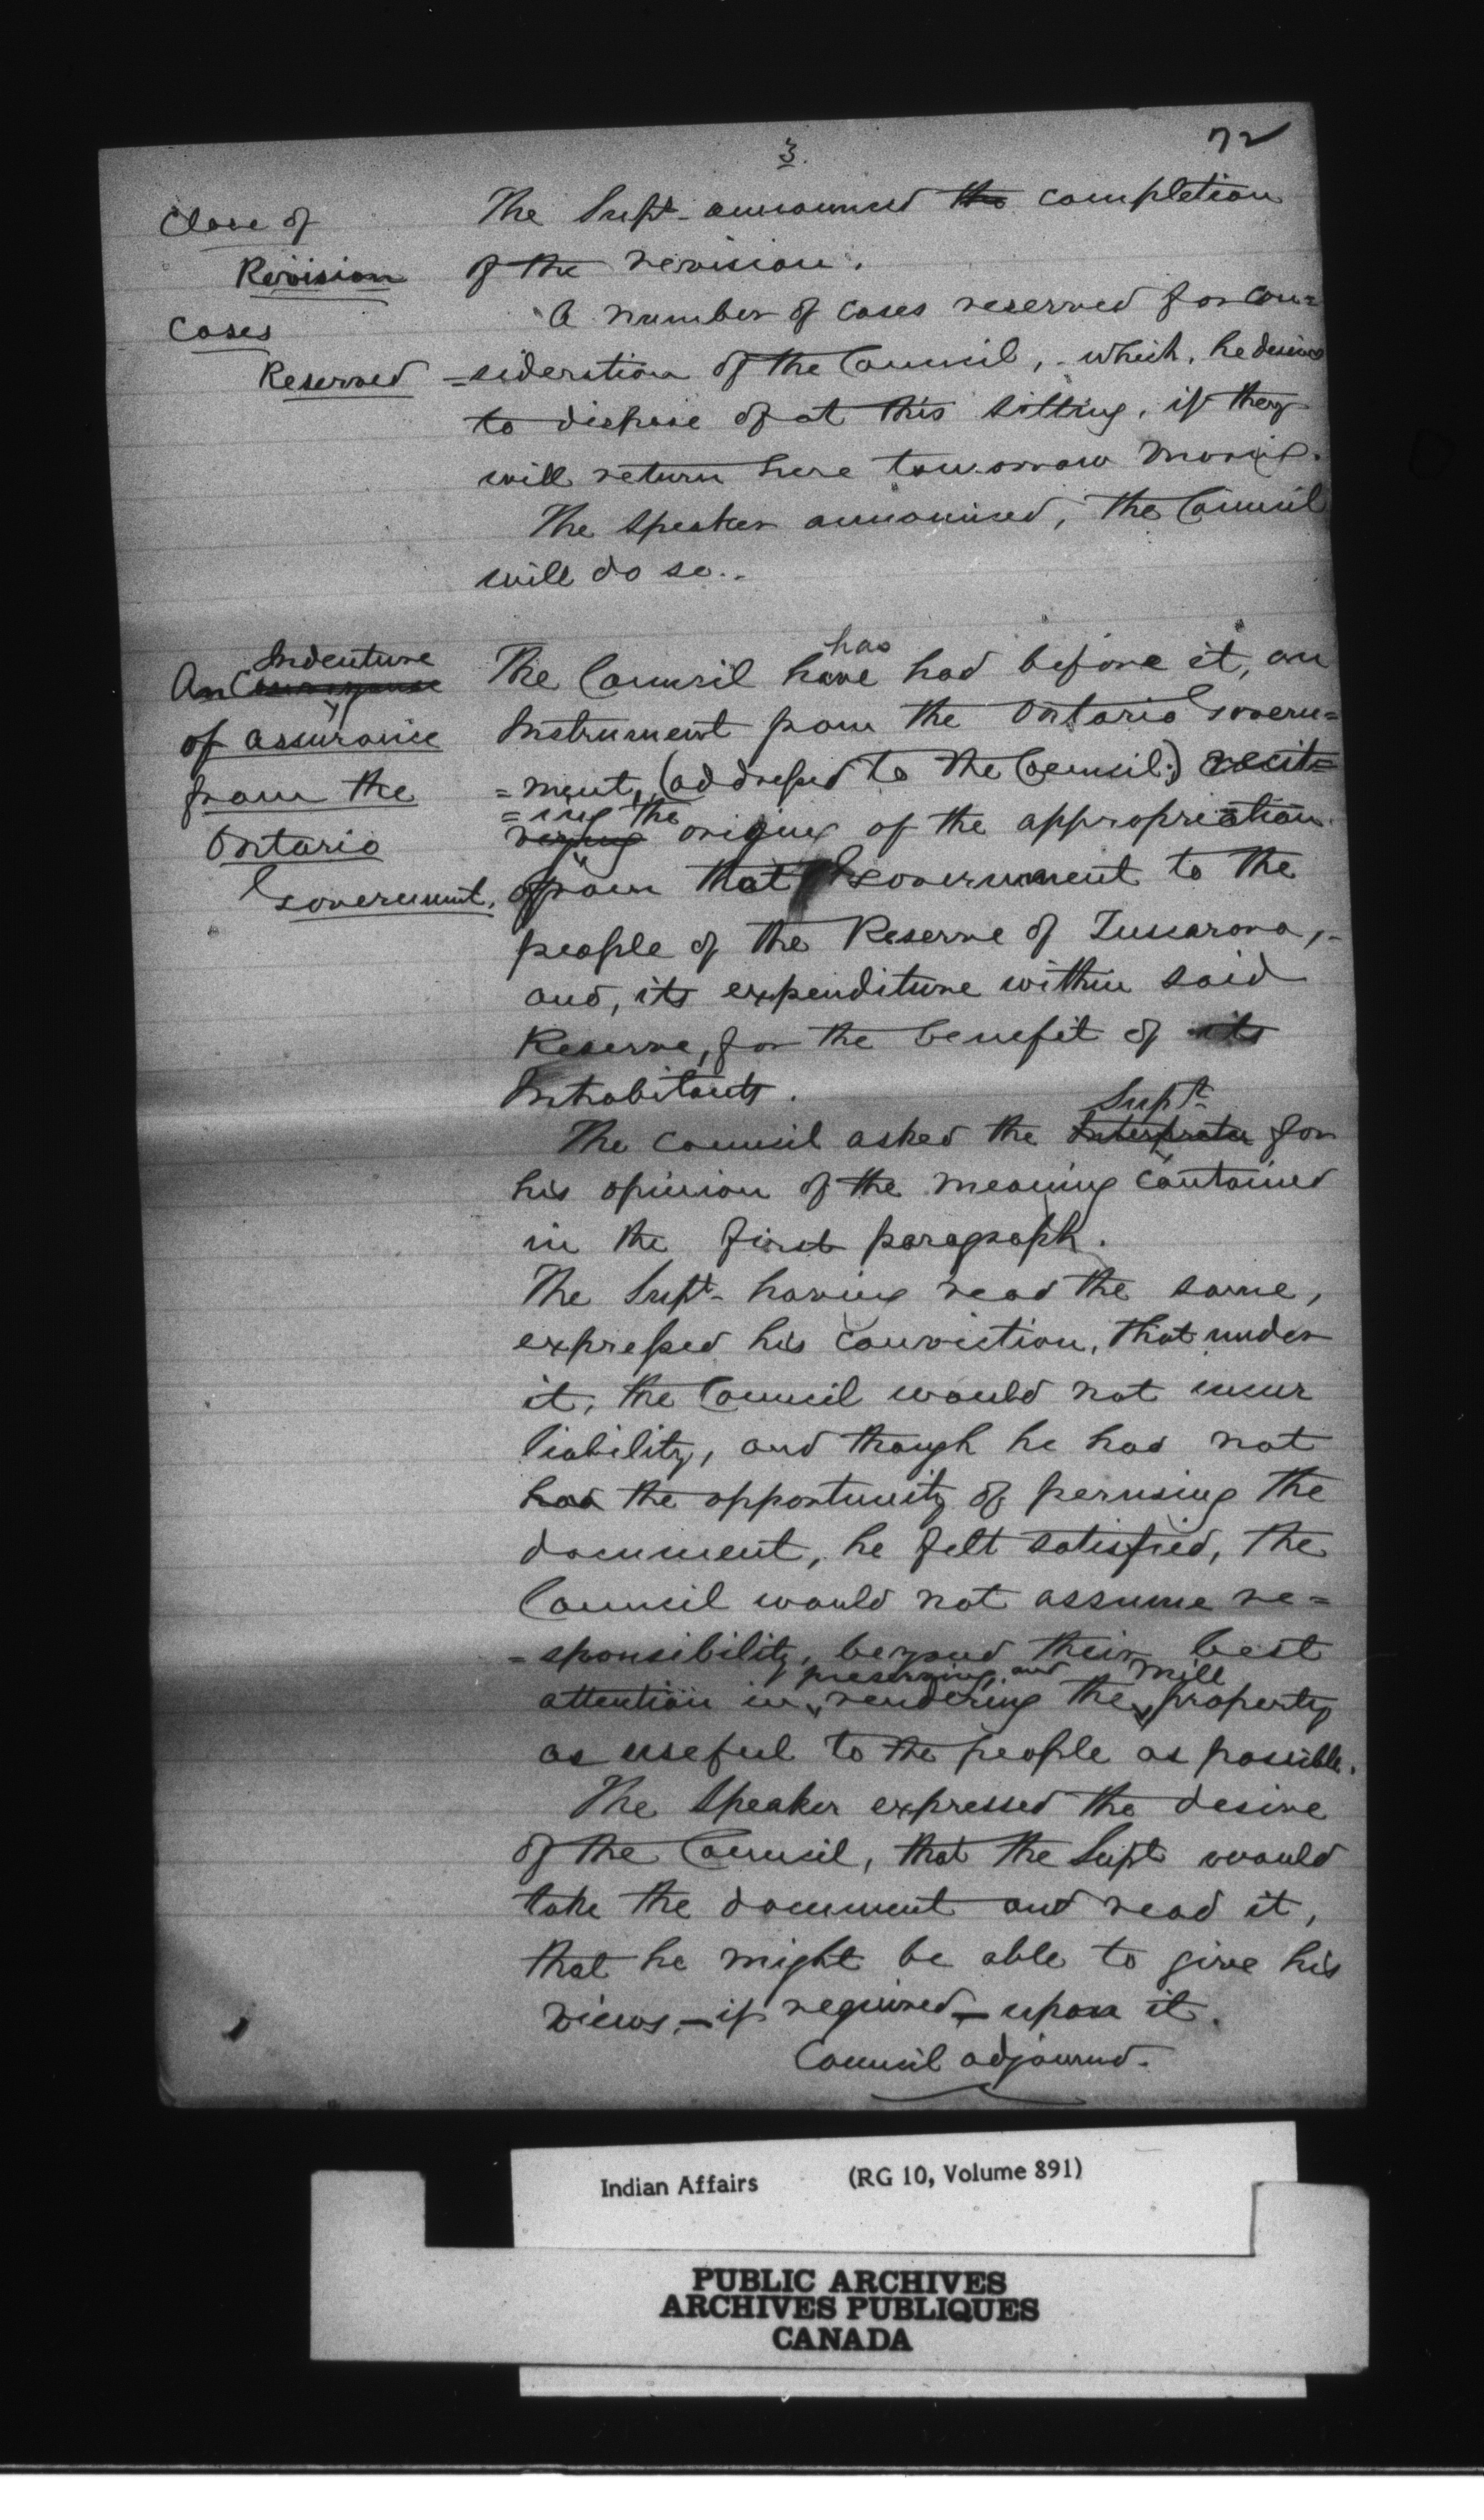 3.
72
Close of
Revision
The Supt. announced the completion
of the revision.
Cases
Reserved
A number of cases reserved for con=
=sideration of the Council, - which, he desires
to dispose of at this sitting, if they
will return here tomorrow morning.
The Speaker announced, the Council
will do so..
An Indenture
of assurance
from the
Ontario
Government.
The Council have has had before it, an
Instrument from the Ontario Govern=
=ment, (addressed to the Council;) recit=
=ing the origin of the appropriation
from that Government to the
people of the Reserve of Tuscarora, -
and, its expenditure within said
Reserve, for the benefit of its
Inhabitants.
The Council asked the Interpreter Supt. for
his opinion of the meaning contained
in the first paragraph.
The Supt. having read the same,
expressed his conviction, that under
it, the Council would not incur
liability, and though he had not
had the opportunity of perusing the
document, he felt satisfied, the
Council would not assume re=
=sponsibility, beyond their best
attention in preserving, and rendering the mill property
as useful to the people as possible.
The Speaker expressed the desire
of the Council, that the Supt. would
take the document and read it,
that he might be able to give his
views, - if required - upon it.
Council adjourned.
Indian Affairs (RG 10, Volume 891)
PUBLIC ARCHIVES
ARCHIVES PUBLIQUES
CANADA